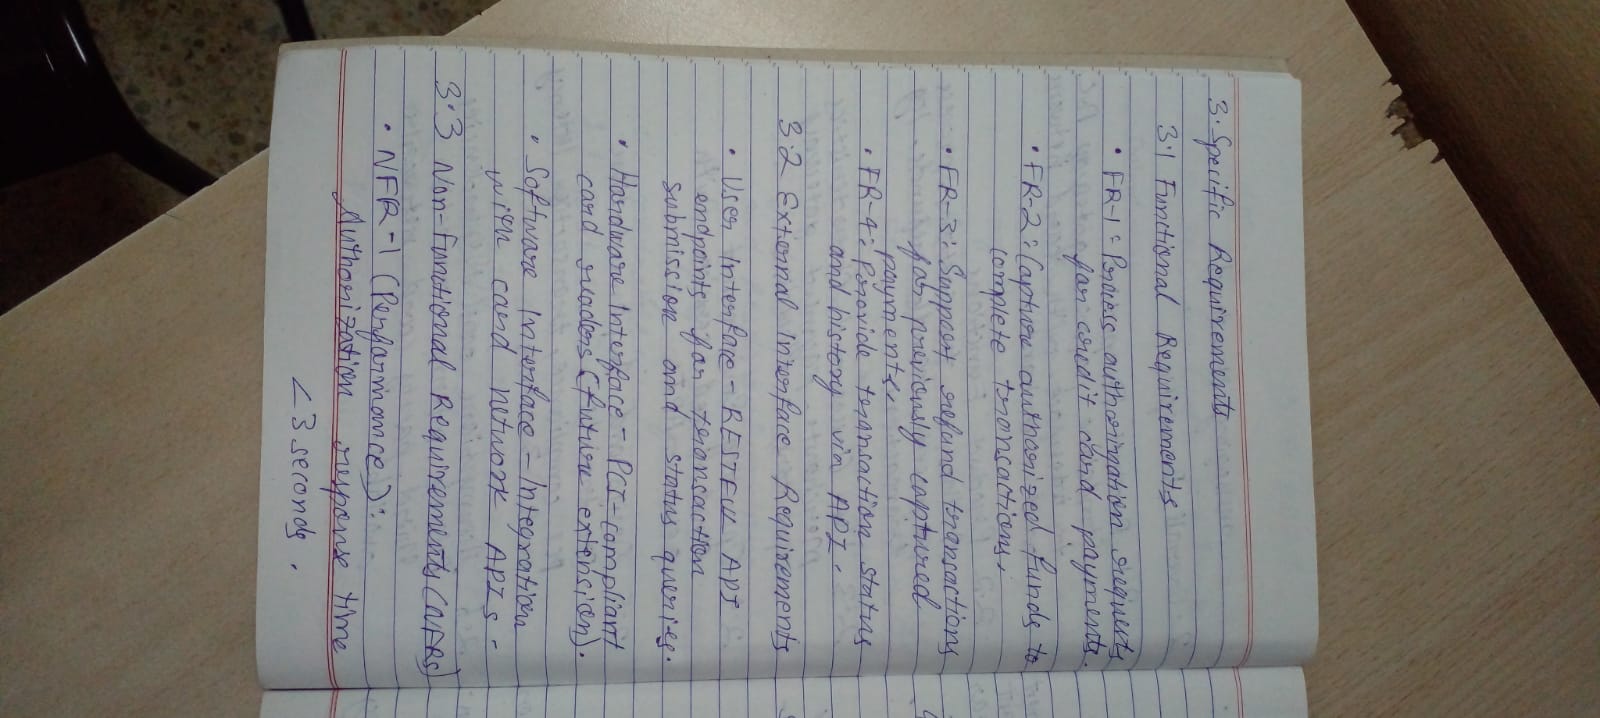 3. Specific Requirements
3.1 Functional Requirements
• FR-1: Process authorization requests
for credit card payments.
• FR-2: Capture authorized funds to
complete transactions.
• FR-3: Support refund transactions
for previously captured
payments.
• FR-4: Provide transaction status
and history via API.
3.2 External Interface Requirements
• User Interface - RESTFul API
endpoints for transaction
submission and status queries.
• Hardware Interface - PCI-compliant
card readers (future extension).
• Software Interface - Integration
with card network APIs.
3.3 Non-Functional Requirements (NFRs)
• NFR-1 (Performance):
Authorization response time
< 3 seconds.